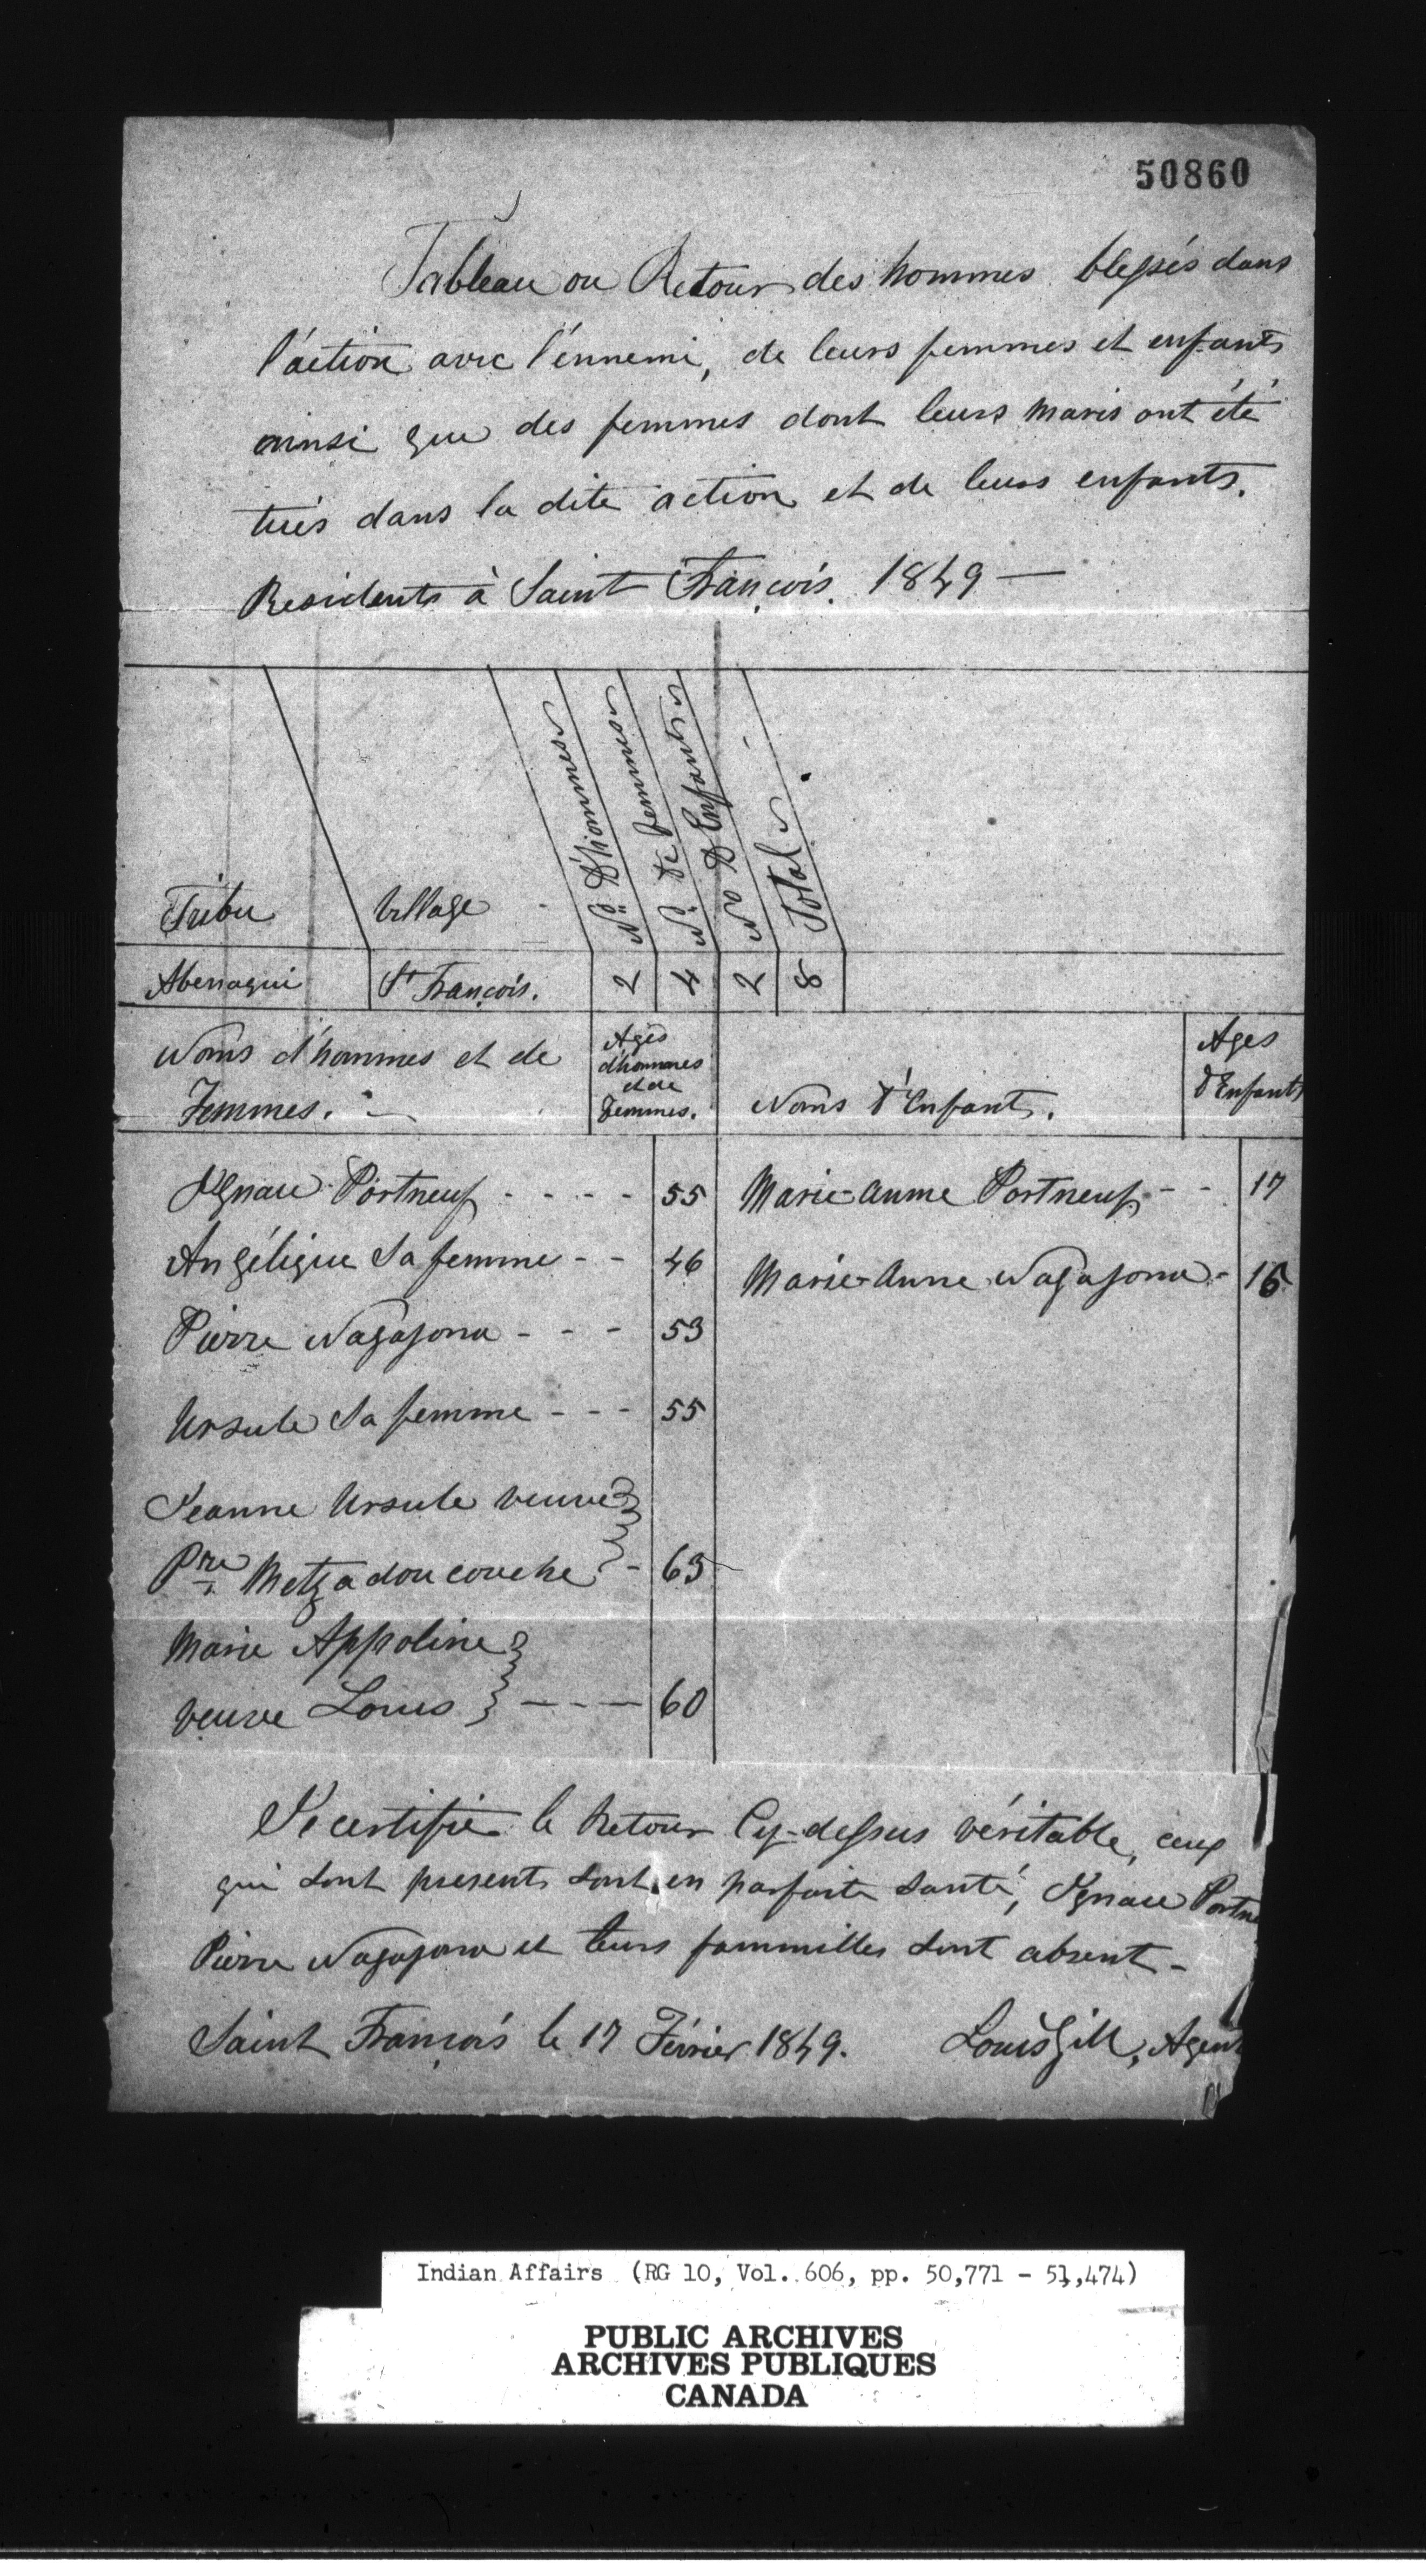 50860
Tableau ou Retour des hommes blessés dans
l'action avec l'énnemi, de leurs femmes et enfants
ainsi que des femmes dont leurs maris ont été
tués dans la dite action et de leurs enfants.
Residents à Saint François. 1849 —
Tribu
Village
No. D'hommes
No. De femmes
No D'Enfants
Total
Abenaqui
St François.
2
4
2
8
Noms d'hommes et de
Femmes.
Ages
d'hommes
et de
Femmes.
Noms d'Enfants.
Ages
d'Enfants
Ignace Portneuf - - - - 55
Marie-Anne Portneuf - - 17
Angélique Sa femme - - 46
Marie-Anne Nagajona - 16
Pierre Nagajona - - - 53
Ursule Sa femme - - - 55
Jeanne Ursule veuve
Pre Metzadoucouche - 63
Marie Appoline
veuve Louis - - - - 60
Je certifie le Retour Cy-dessus véritable, ceux
qui sont present sont en parfaite santé, Ignace Portne
Pierre Nagajona et leurs fammilles sont absent -
Saint François le 17 Février 1849. Louis Gill, Agent
Indian Affairs (RG 10, Vol. 606, pp. 50,771 - 51,474)
PUBLIC ARCHIVES
ARCHIVES PUBLIQUES
CANADA